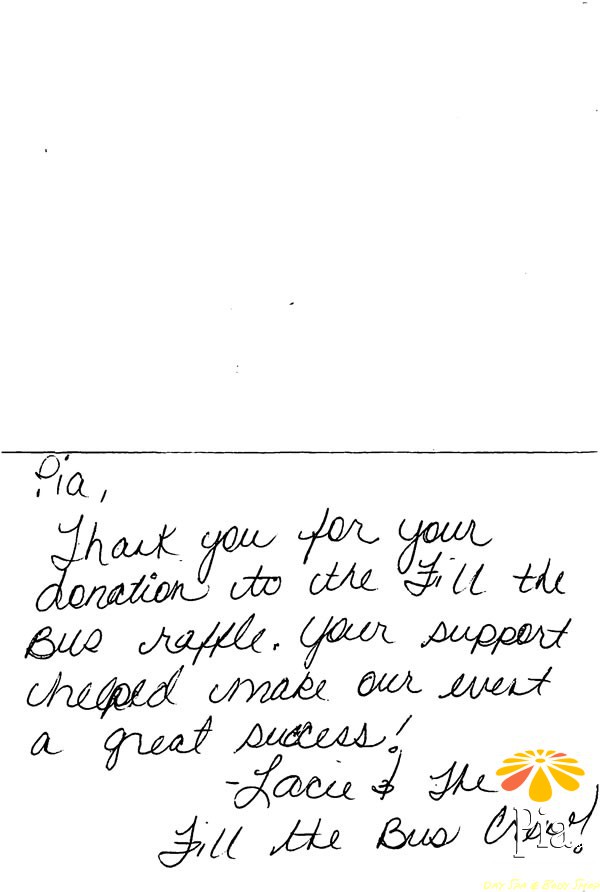 Pia,
Thank you for your
donation to the Fill the
Bus raffle. Your support
helped make our event
a great success!
-Lacie & The
Fill the Bus Crew!
Pia